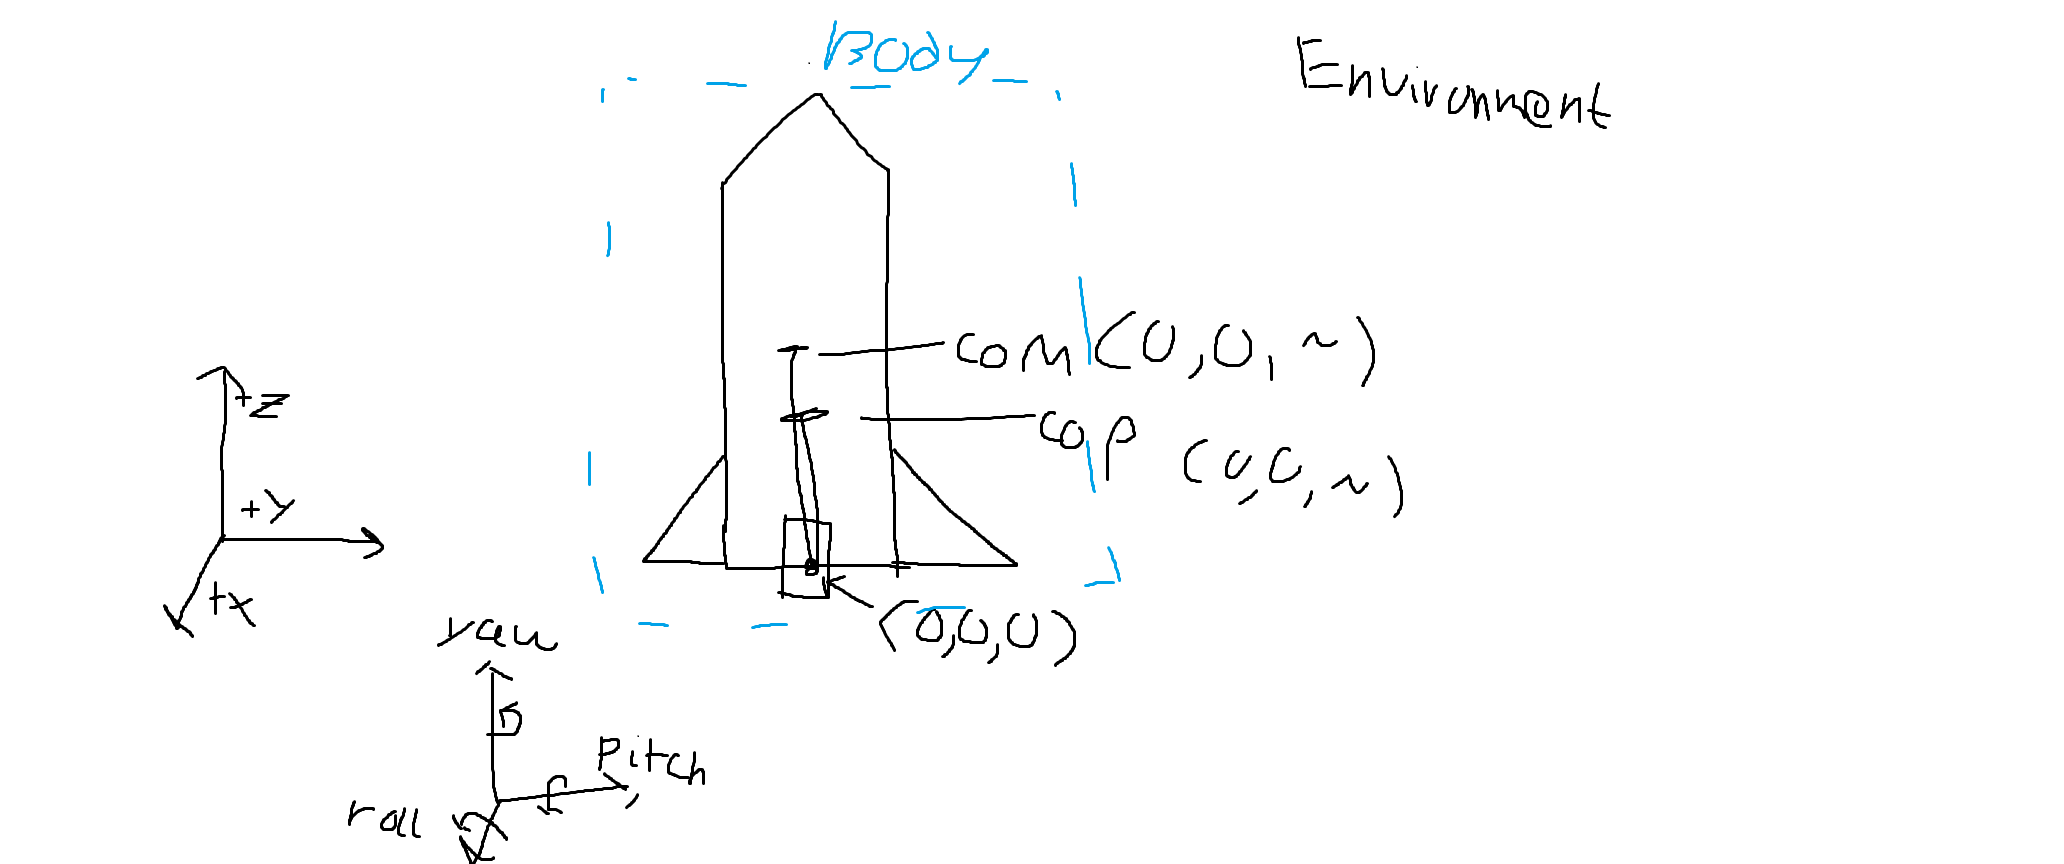 Body
Environment
COM (0,0,~)
COP (0,0,~)
+Z
+Y
+X
(0,0,0)
yaw
Pitch
roll